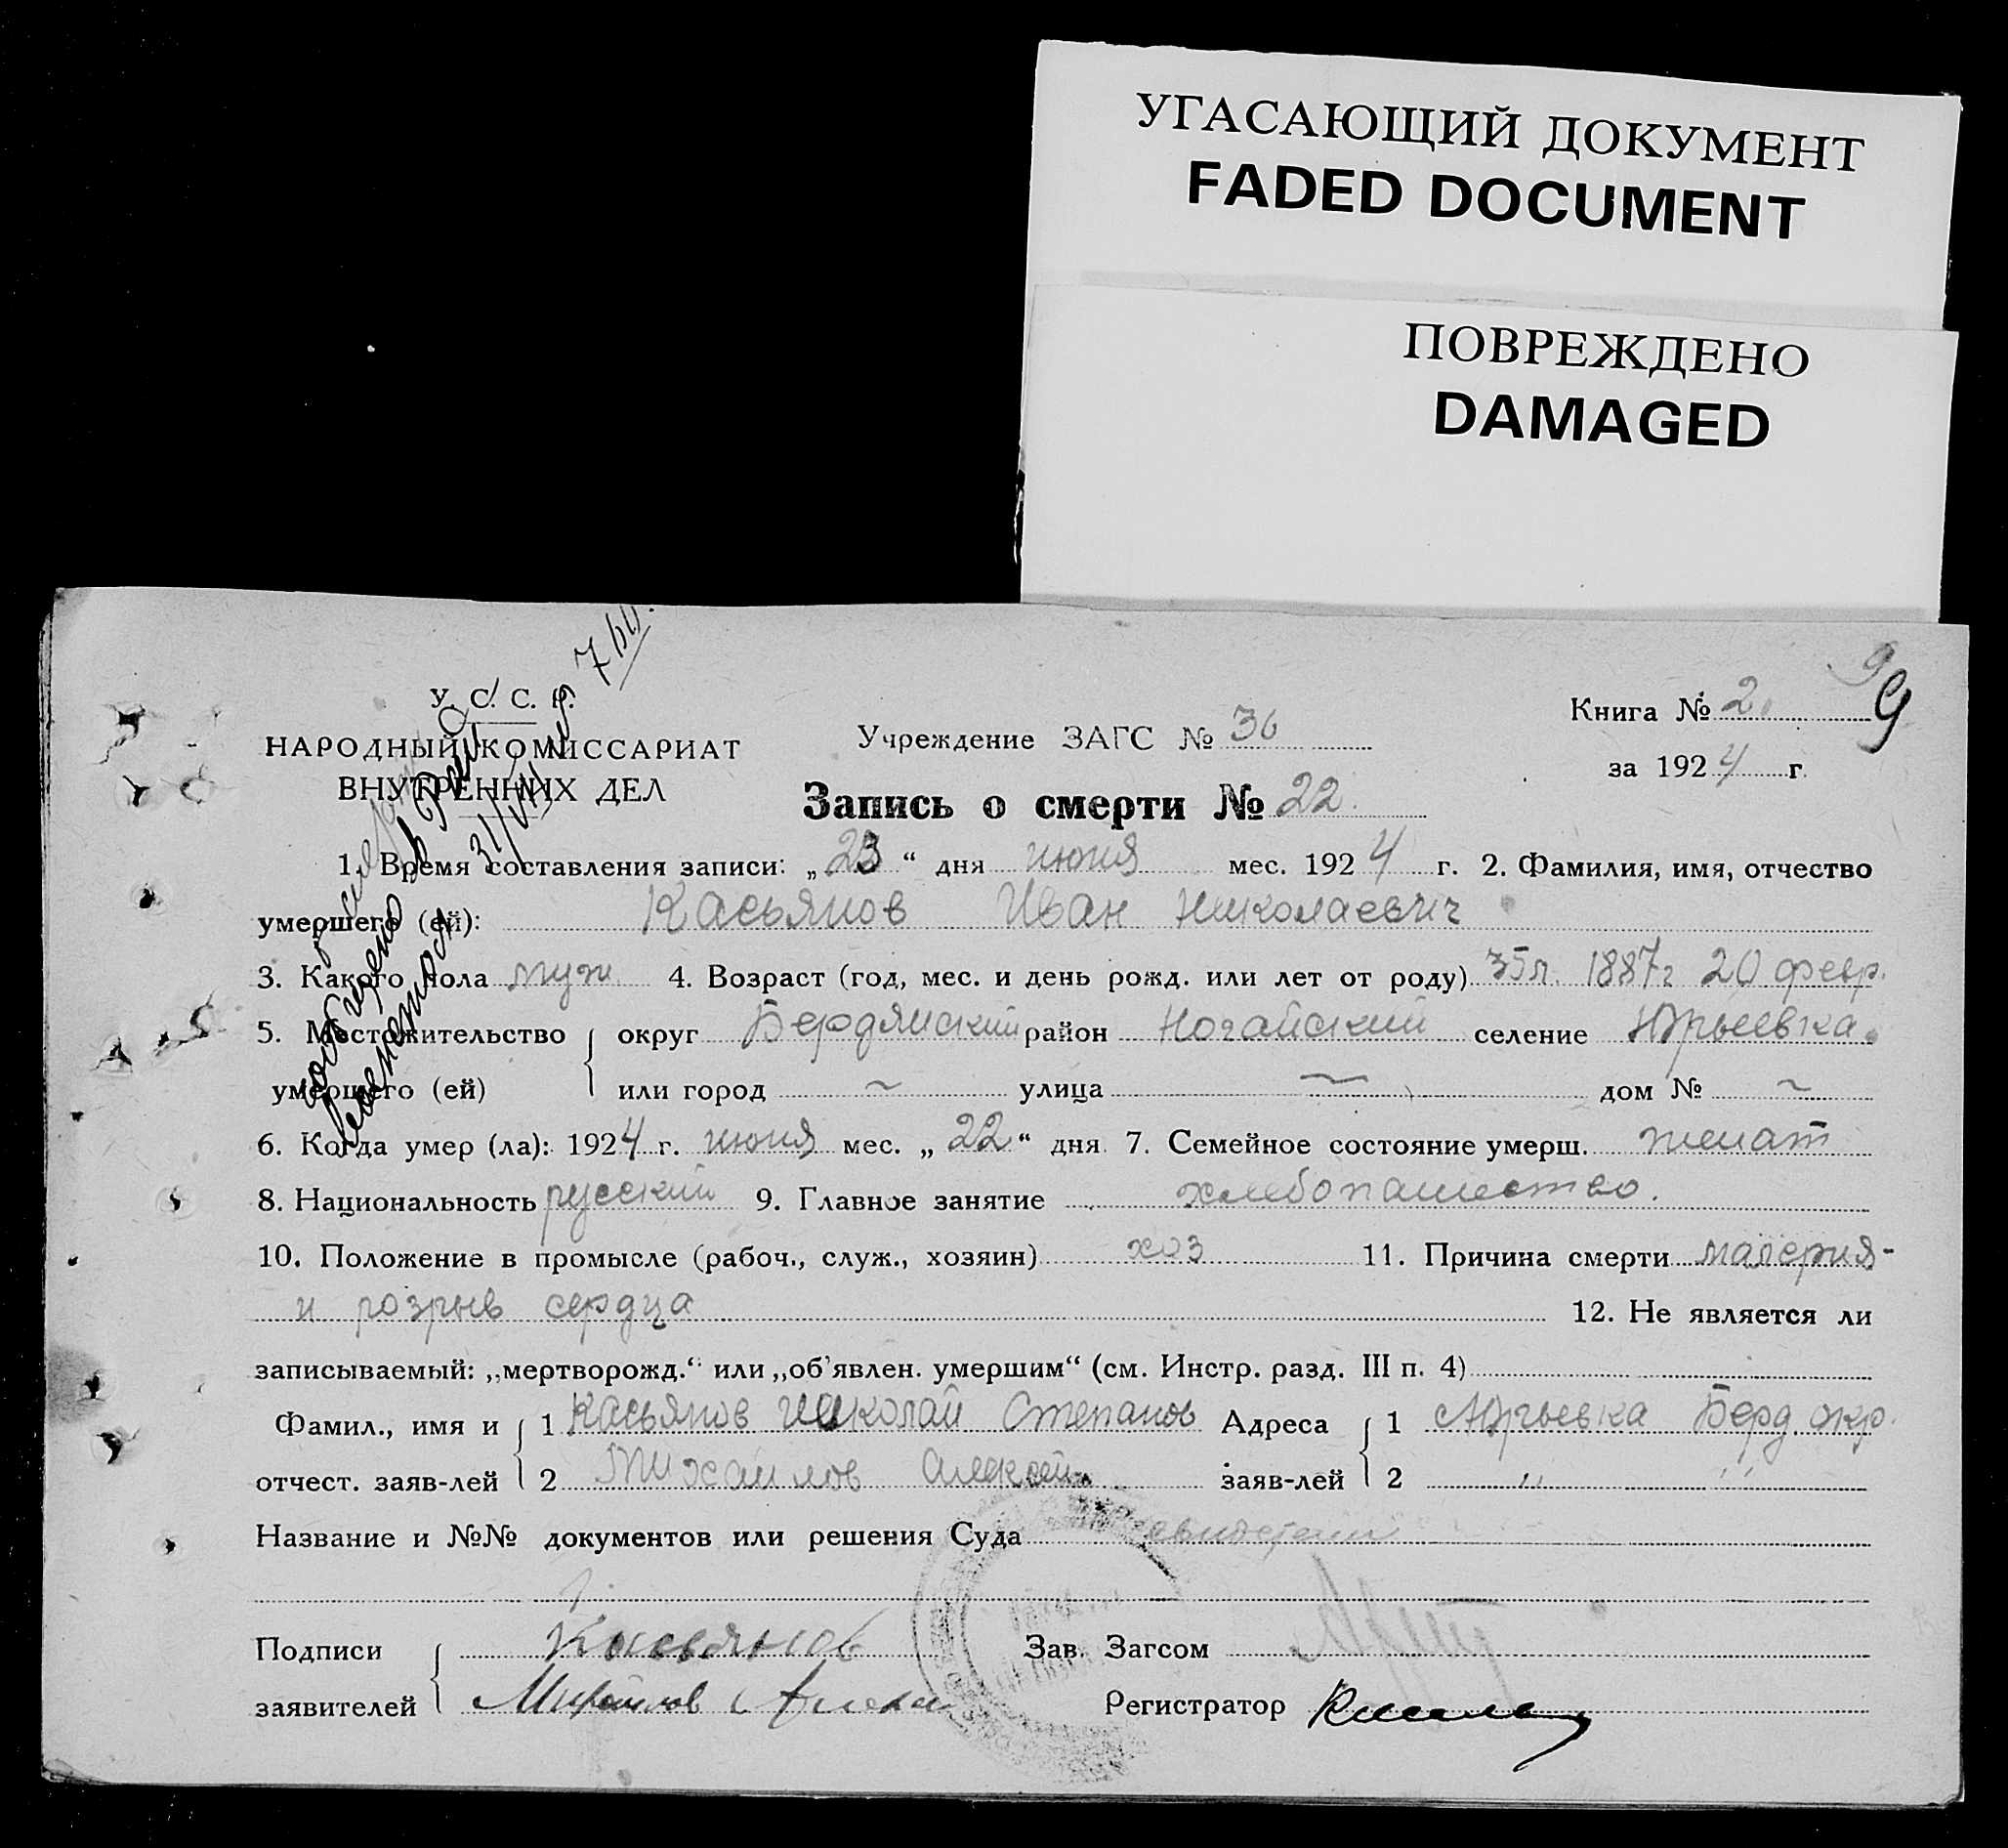 УГАСАЮЩИЙ ДОКУМЕНТ
FADED DOCUMENT
ПОВРЕЖДЕНО
DAMAGED
У. С. С. Р.
НАРОДНЫЙ КОМИССАРИАТ
ВНУТРЕННИХ ДЕЛ
Учреждение ЗАГС № 36
Книга № 2.
за 1924 г.
99
Запись о смерти № 22.
1. Время составления записи: „23“ дня июня мес. 1924 г. 2. Фамилия, имя, отчество
умершего (ей): Касьянов Иван Николаевич
3. Какого пола муж. 4. Возраст (год, мес. и день рожд. или лет от роду) 35л. 1887г 20 февр.
5. Местожительство округ Бердянский район Ногайский селение Юрьевка.
умершего (ей) или город ~ улица ~ дом № ~
6. Когда умер (ла): 1924 г. июня мес. „22“ дня 7. Семейное состояние умерш. женат
8. Национальность русский 9. Главное занятие хлебопашество.
10. Положение в промысле (рабоч., служ., хозяин) хоз 11. Причина смерти малерия-
и розрыв сердца 12. Не является ли
записываемый: „мертворожд.“ или „об'явлен. умершим“ (см. Инстр. разд. III п. 4)
Фамил., имя и 1 Касьянов Николай Степанов Адреса 1 Юрьевка Берд. окр.
отчест. заяв-лей 2 Михайлов Алексей заяв-лей 2 " "
Название и №№ документов или решения Суда
Подписи Касьянов Зав. Загсом
заявителей Михайлов Регистратор